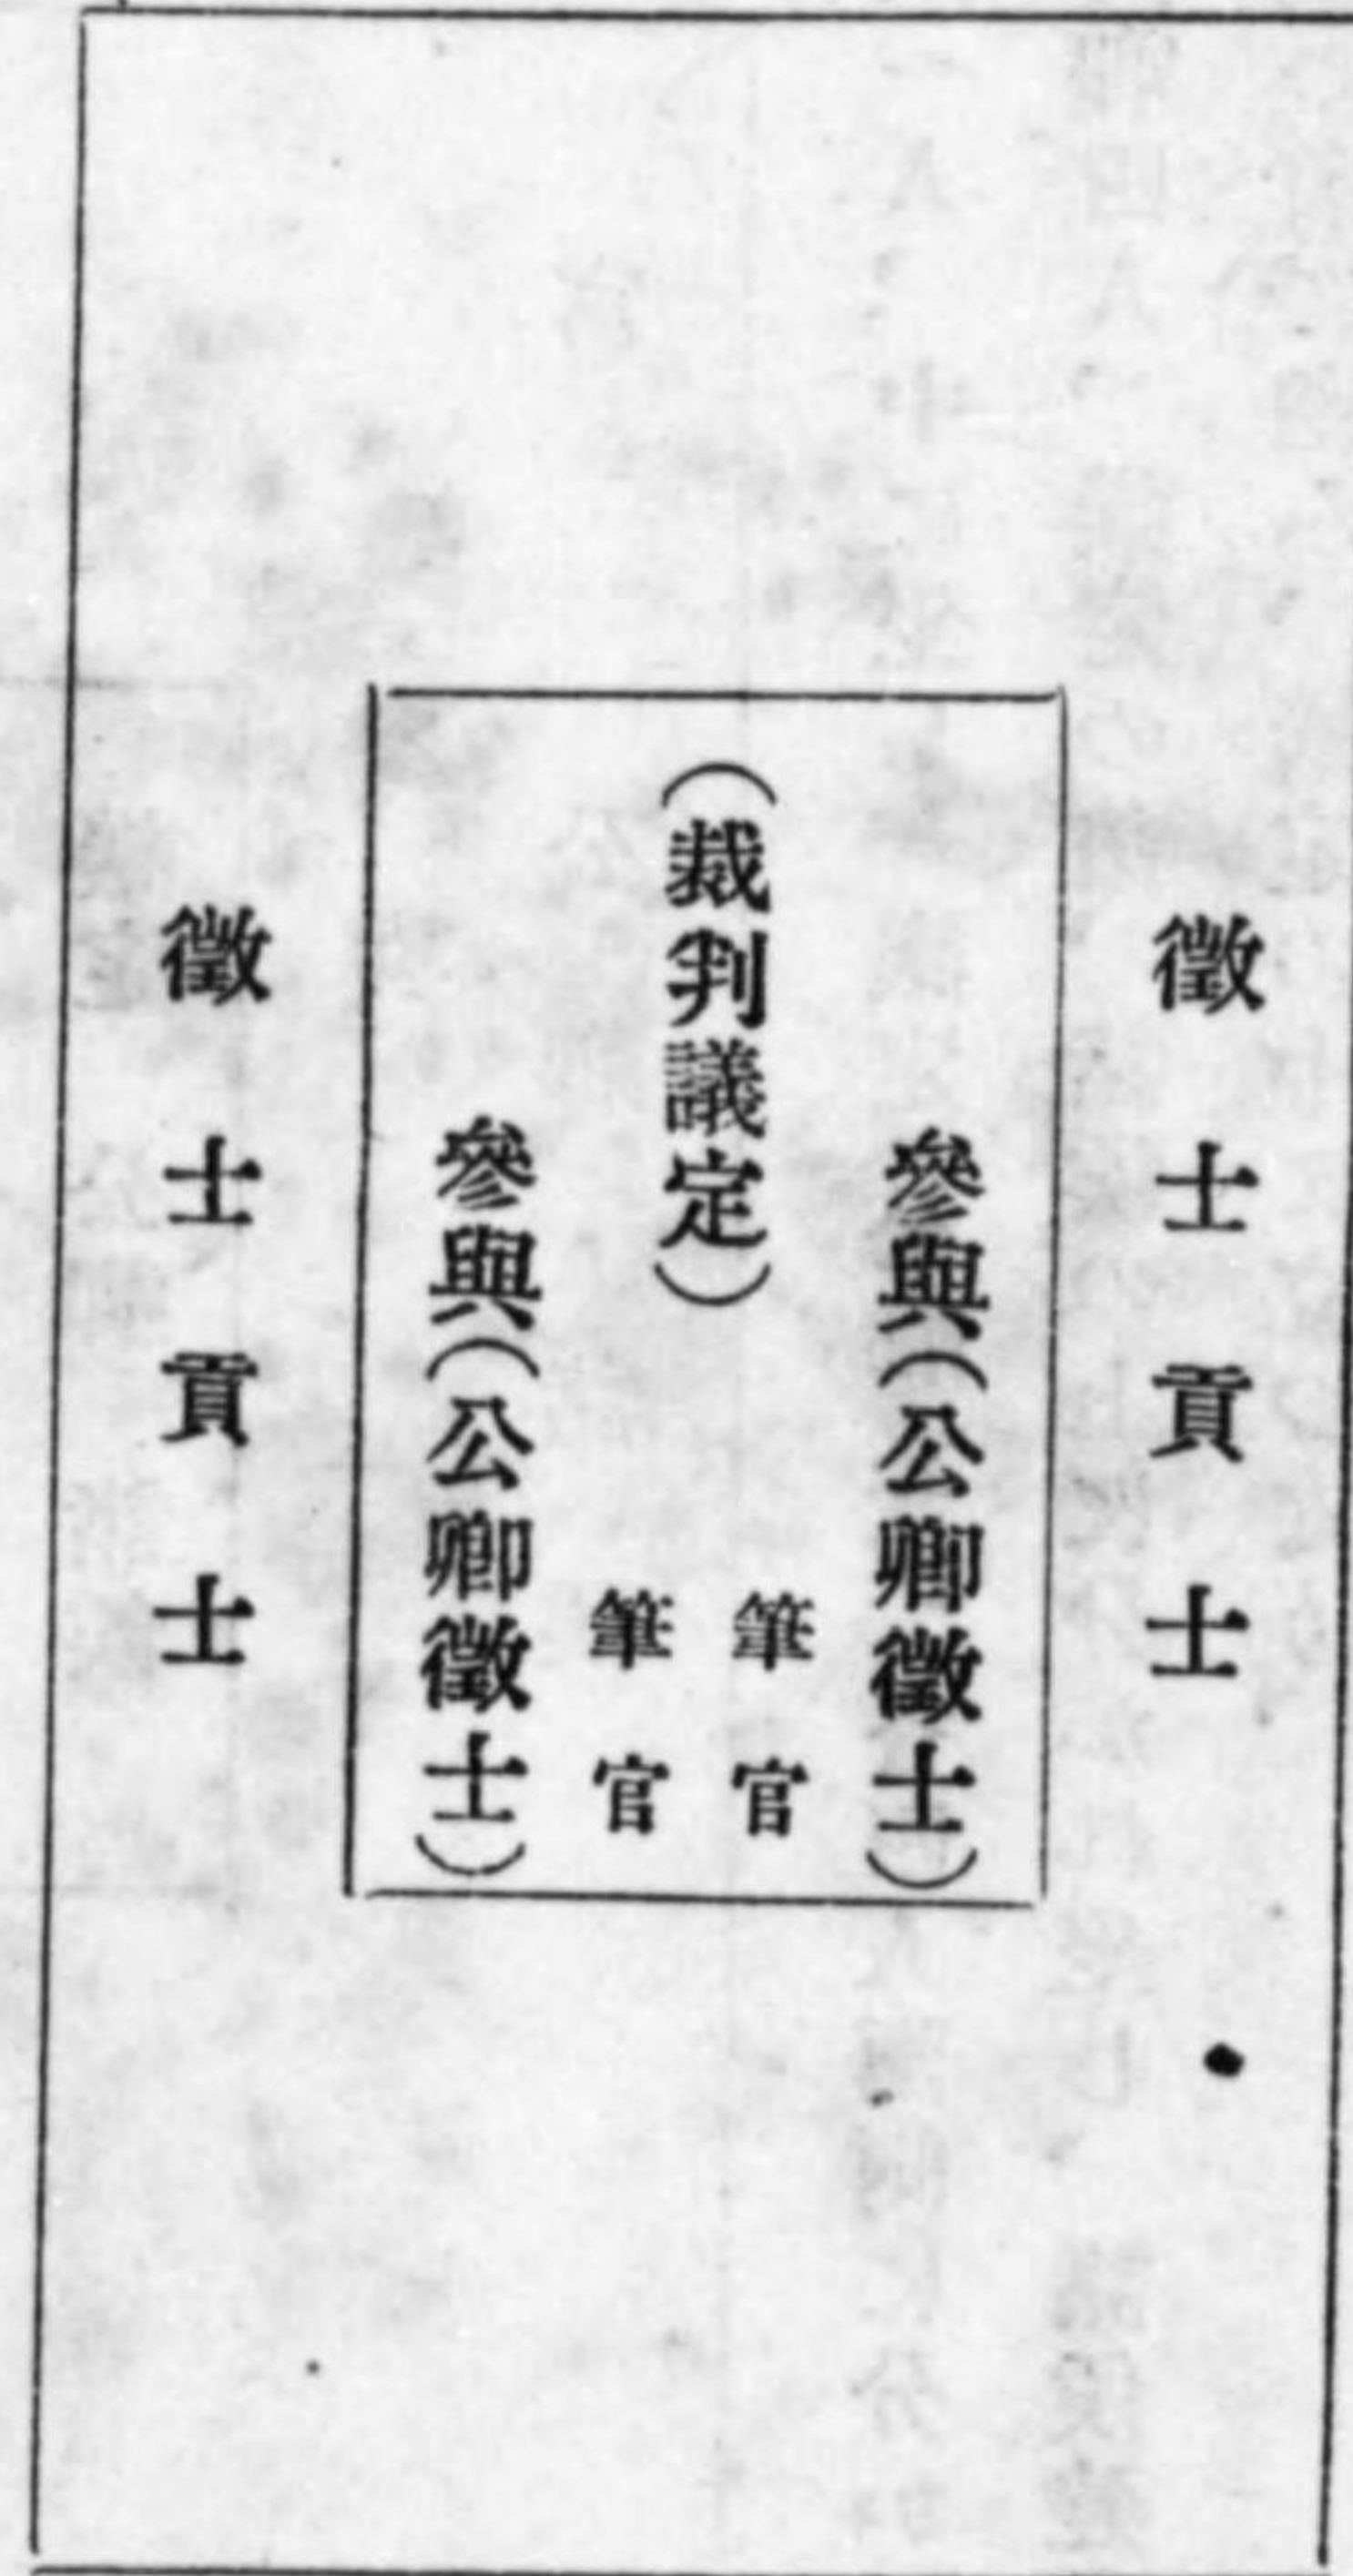 徵士貢士
參與(公卿徵士)
(裁判議定)
筆官
筆官
參與(公卿徵士)
徵士貢士